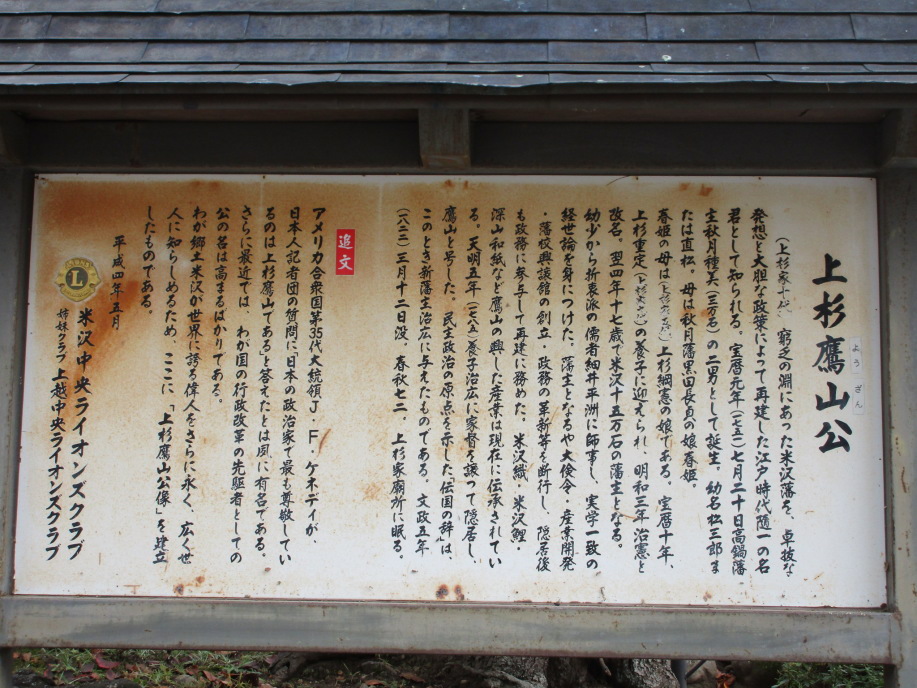 上杉鷹山公
ようざん
(上杉家十代) 窮乏の淵にあった米沢藩を、卓抜な
発想と大胆な政策によって再建した江戸時代随一の名
君として知られる。宝暦元年(一七五一)七月二十日高鍋藩
主秋月種美(三万石)の二男として誕生。幼名松三郎ま
たは直松。母は秋月藩黒田長貞の娘春姫。
春姫の母は 上杉綱憲の娘である。宝暦十年、
上杉重定 の養子に迎えられ、明和三年治憲と
改名。翌四年十七歳で米沢十五万石の藩主となる。
幼少から折衷派の儒者細井平洲に師事し、実学一致の
経世論を身につけた。藩主となるや大倹令、産業開発
・藩校興譲館の創立、政務の革新等を断行し、隠居後
も政務に参与して再建に務めた。米沢織、米沢鯉・
深山和紙など鷹山の興した産業は現在に伝承されてい
る。天明五年(一七八五)養子治広に家督を譲って隠居し、
鷹山と号した。民主政治の原点を示した「伝国の辞」は
このとき新藩主治広に与えたものである。文政五年
(一八二二)三月十二日没、春秋七二、上杉家廟所に眠る。
追文
アメリカ合衆国第35代大統領J・F・ケネディが、
日本人記者団の質問に「日本の政治家で最も尊敬してい
るのは上杉鷹山である」と答えたことは夙に有名である。
さらに最近では、わが国の行政改革の先駆者としての
公の名は高まるばかりである。
わが郷土米沢が世界に誇る偉人をさらに永く、広く世
人に知らしめるため、ここに「上杉鷹山公像」を建立
したものである。
平成四年五月
米沢中央ライオンズクラブ
姉妹クラブ 上越中央ライオンズクラブ
LIONS
L